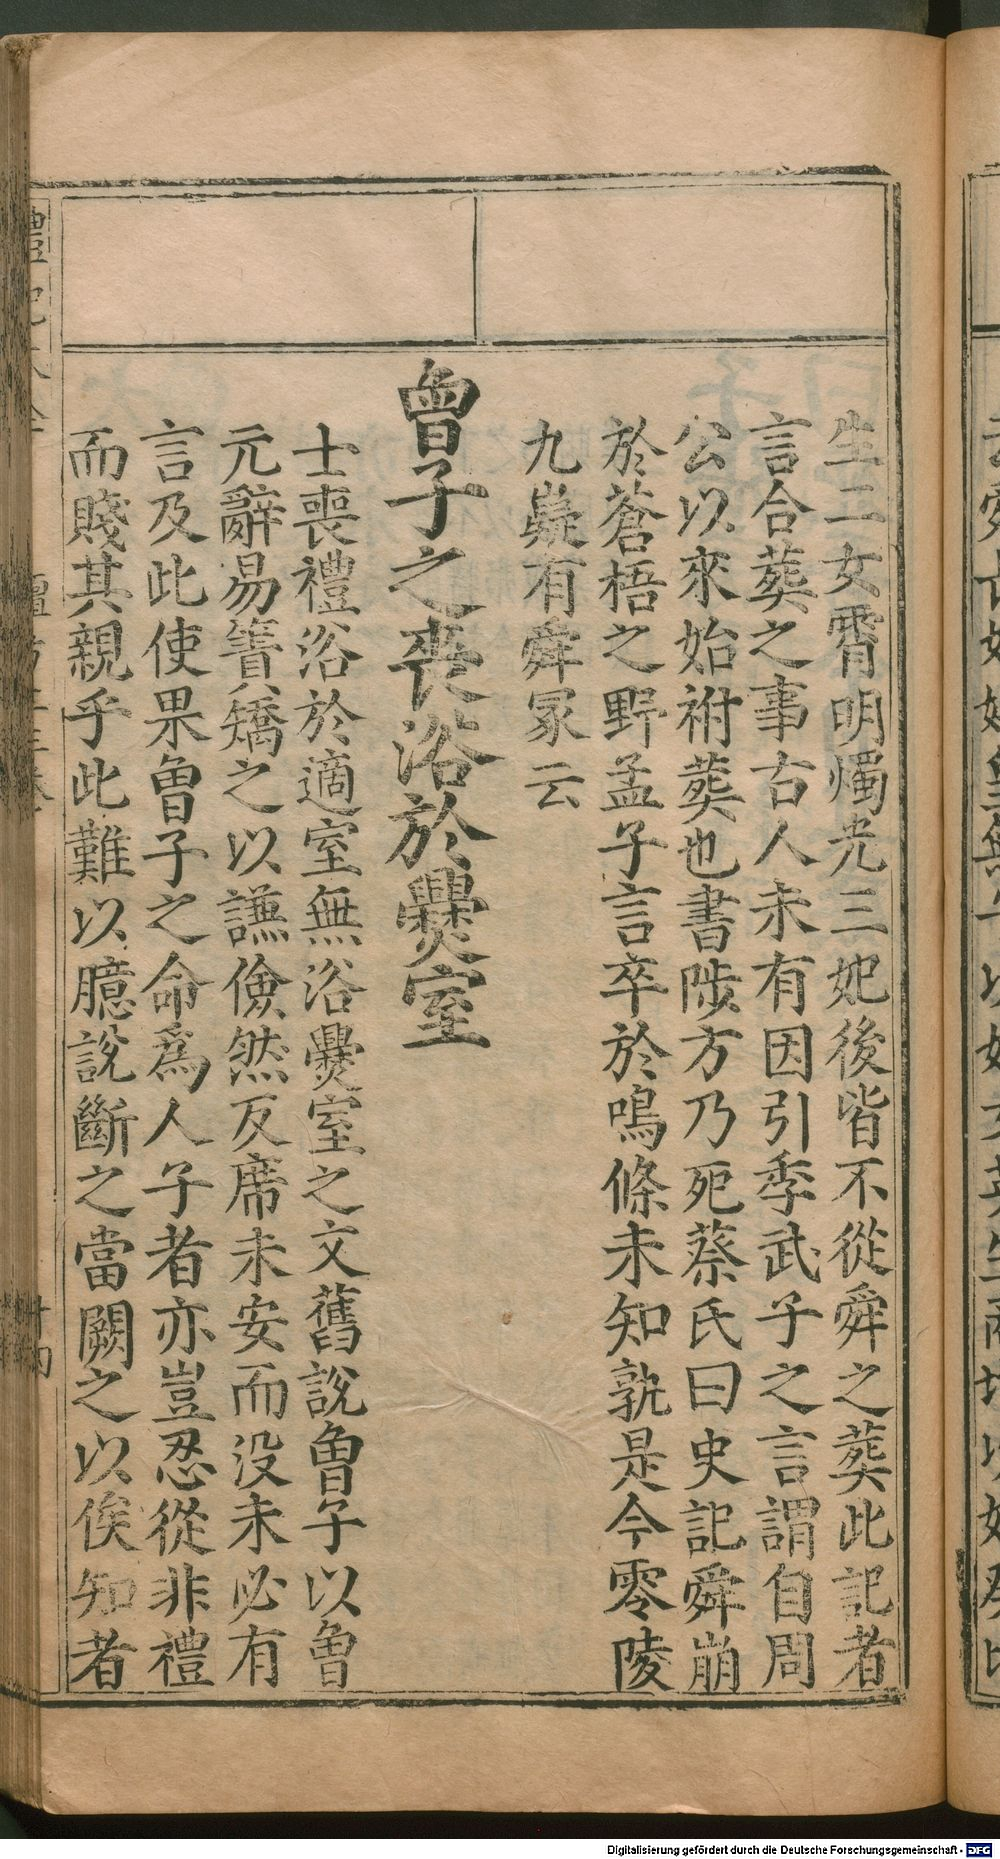 生二女霄明燭光三妃後皆不從舜之葬此記者
言合葬之事古人未有因引季武子之言謂自周
公以來始祔葬也書陟方乃死蔡氏曰史記舜崩
於蒼梧之野孟子言卒於鳴條未知孰是今零陵
九嶷有舜冢云
曾子之喪浴於爨室
士喪禮浴於適室無浴爨室之文舊說曾子以曾
元辭易簀矯之以謙儉然反席未安而没未必有
言及此使果曾子之命爲人子者亦豈忍從非禮
而賤其親乎此難以臆說斷之當闕之以俟知者
Digitalisierung gefördert durch die Deutsche Forschungsgemeinschaft - DFG